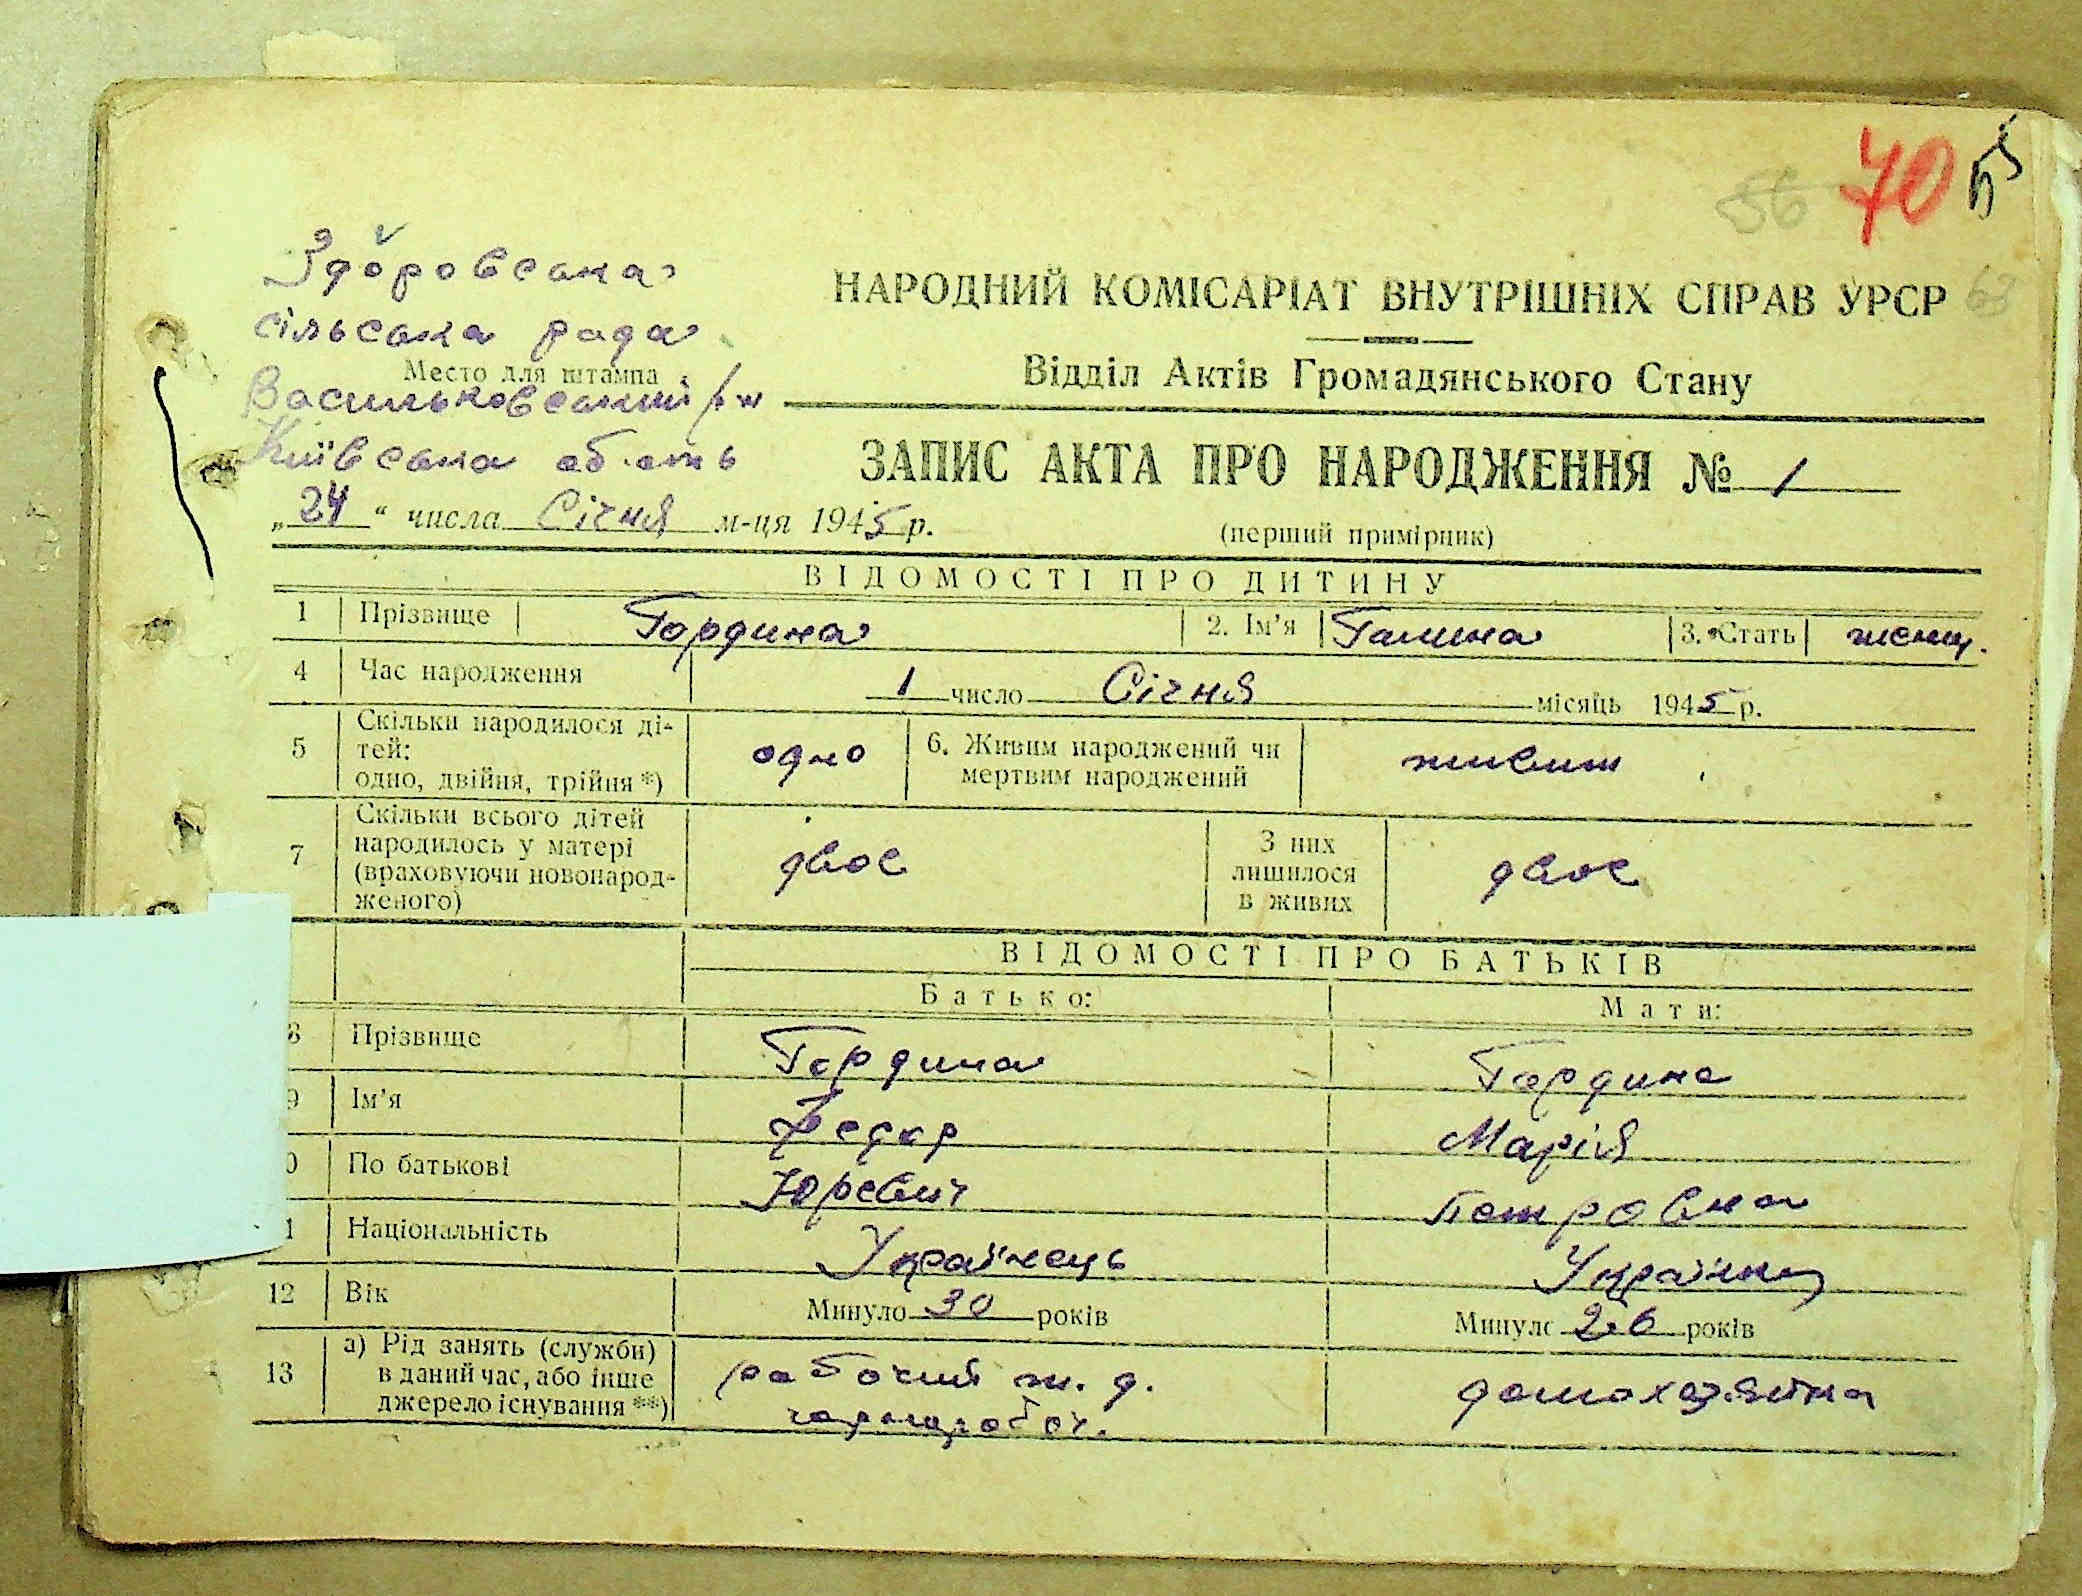 56 70 55
Здоровська
сільська рада
Место для штампа
Васильковський р-н
Київська область
63
НАРОДНИЙ КОМІСАРІАТ ВНУТРІШНІХ СПРАВ УРСР
Відділ Актів Громадянського Стану
ЗАПИС АКТА ПРО НАРОДЖЕННЯ № 1
„24“ числа Січня м-ця 1945 р.
(перший примірник)
ВІДОМОСТІ ПРО ДИТИНУ
1 Прізвище Гордина 2. Ім’я Галина 3. Стать женщ.
4 Час народження 1 число Січня місяць 1945 р.
5 Скільки народилося ді-
тей:
одно, двійня, трійня *) одно 6. Живим народжений чи
мертвим народжений живим
7 Скільки всього дітей
народилось у матері
(враховуючи новонарод-
женого) двоє З них
лишилося
в живих двоє
ВІДОМОСТІ ПРО БАТЬКІВ
Батько: Мати:
8 Прізвище Гордина Гордина
9 Ім’я Федор Марія
0 По батькові Юревич Петровна
1 Національність Українець Українка
12 Вік Минуло 30 років Минуло 26 років
13 а) Рід занять (служби)
в даний час, або інше
джерело існування **) рабочий ж. д.
домохазяйка